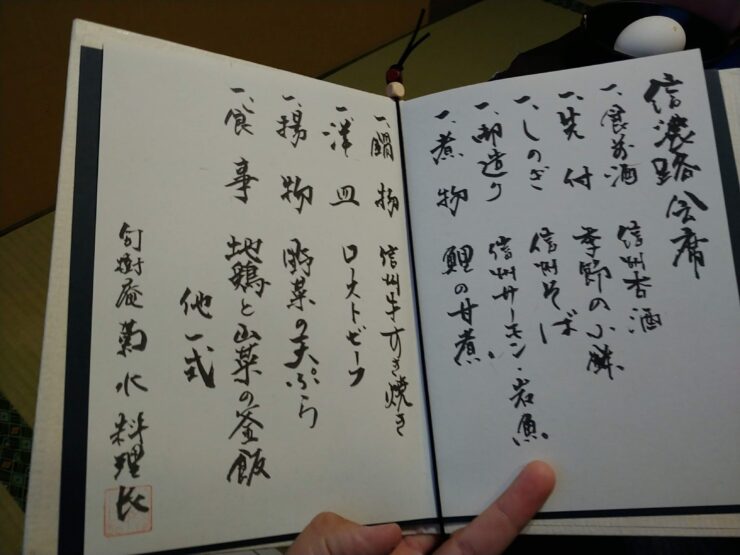 信濃路会席
一、食前酒 信州杏酒
一、先付 季節の小鉢
一、しのぎ 信州そば
一、御造り 信州サーモン・岩魚
一、煮物 鯉の甘煮
一、鍋物 信州牛すき焼き
一、洋皿 ローストビーフ
一、揚物 野菜の天ぷら
一、食事 地鶏と山菜の釜飯
他一式
旬樹庵 菊水 料理長